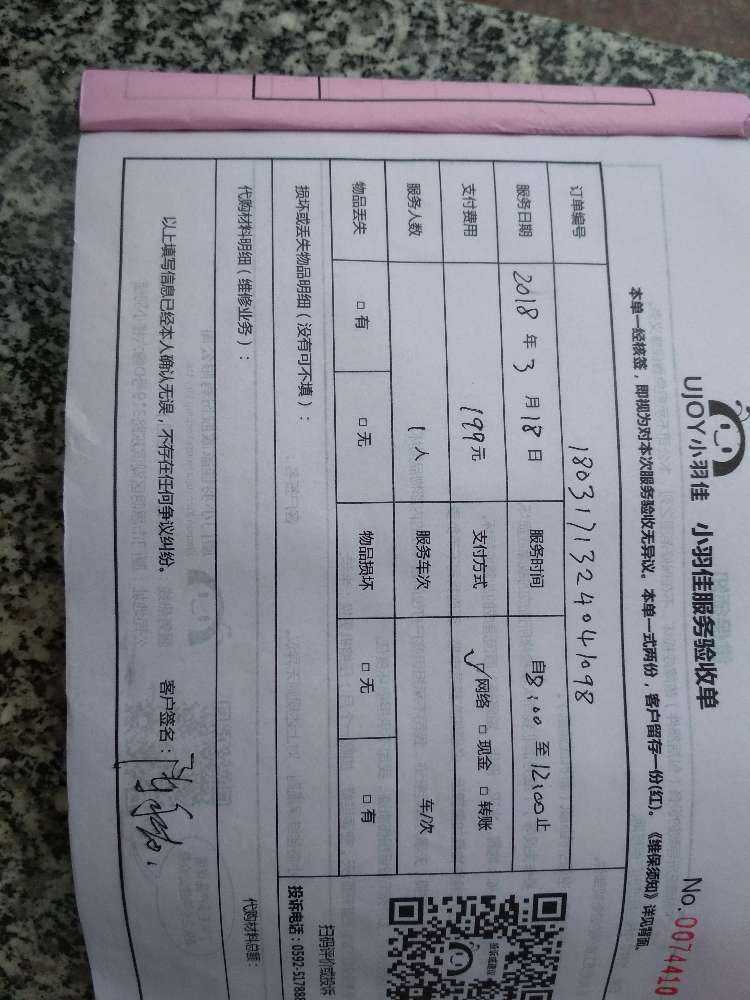 UJOY小羽佳 小羽佳服务验收单
No.0074410
本单一经核签，即视为对本次服务验收无异议。本单一式两份，客户留存一份(红)。《维保须知》详见背面。
订单编号 1803171324041098
服务日期 2018 年 3 月 18 日 服务时间 自8:00 至 12:00止
支付费用 199元 支付方式 ☑网络 □现金 □转账
服务人数 1人 服务车次 车/次
物品丢失 □有 □无 物品损坏 □无 □有
损坏或丢失物品明细（没有可不填）：
扫码评价或投诉
投诉电话：0592-51788
代购材料明细（维修业务）：
代购材料总额：
以上填写信息已经本人确认无误，不存在任何争议纠纷。 客户签名：